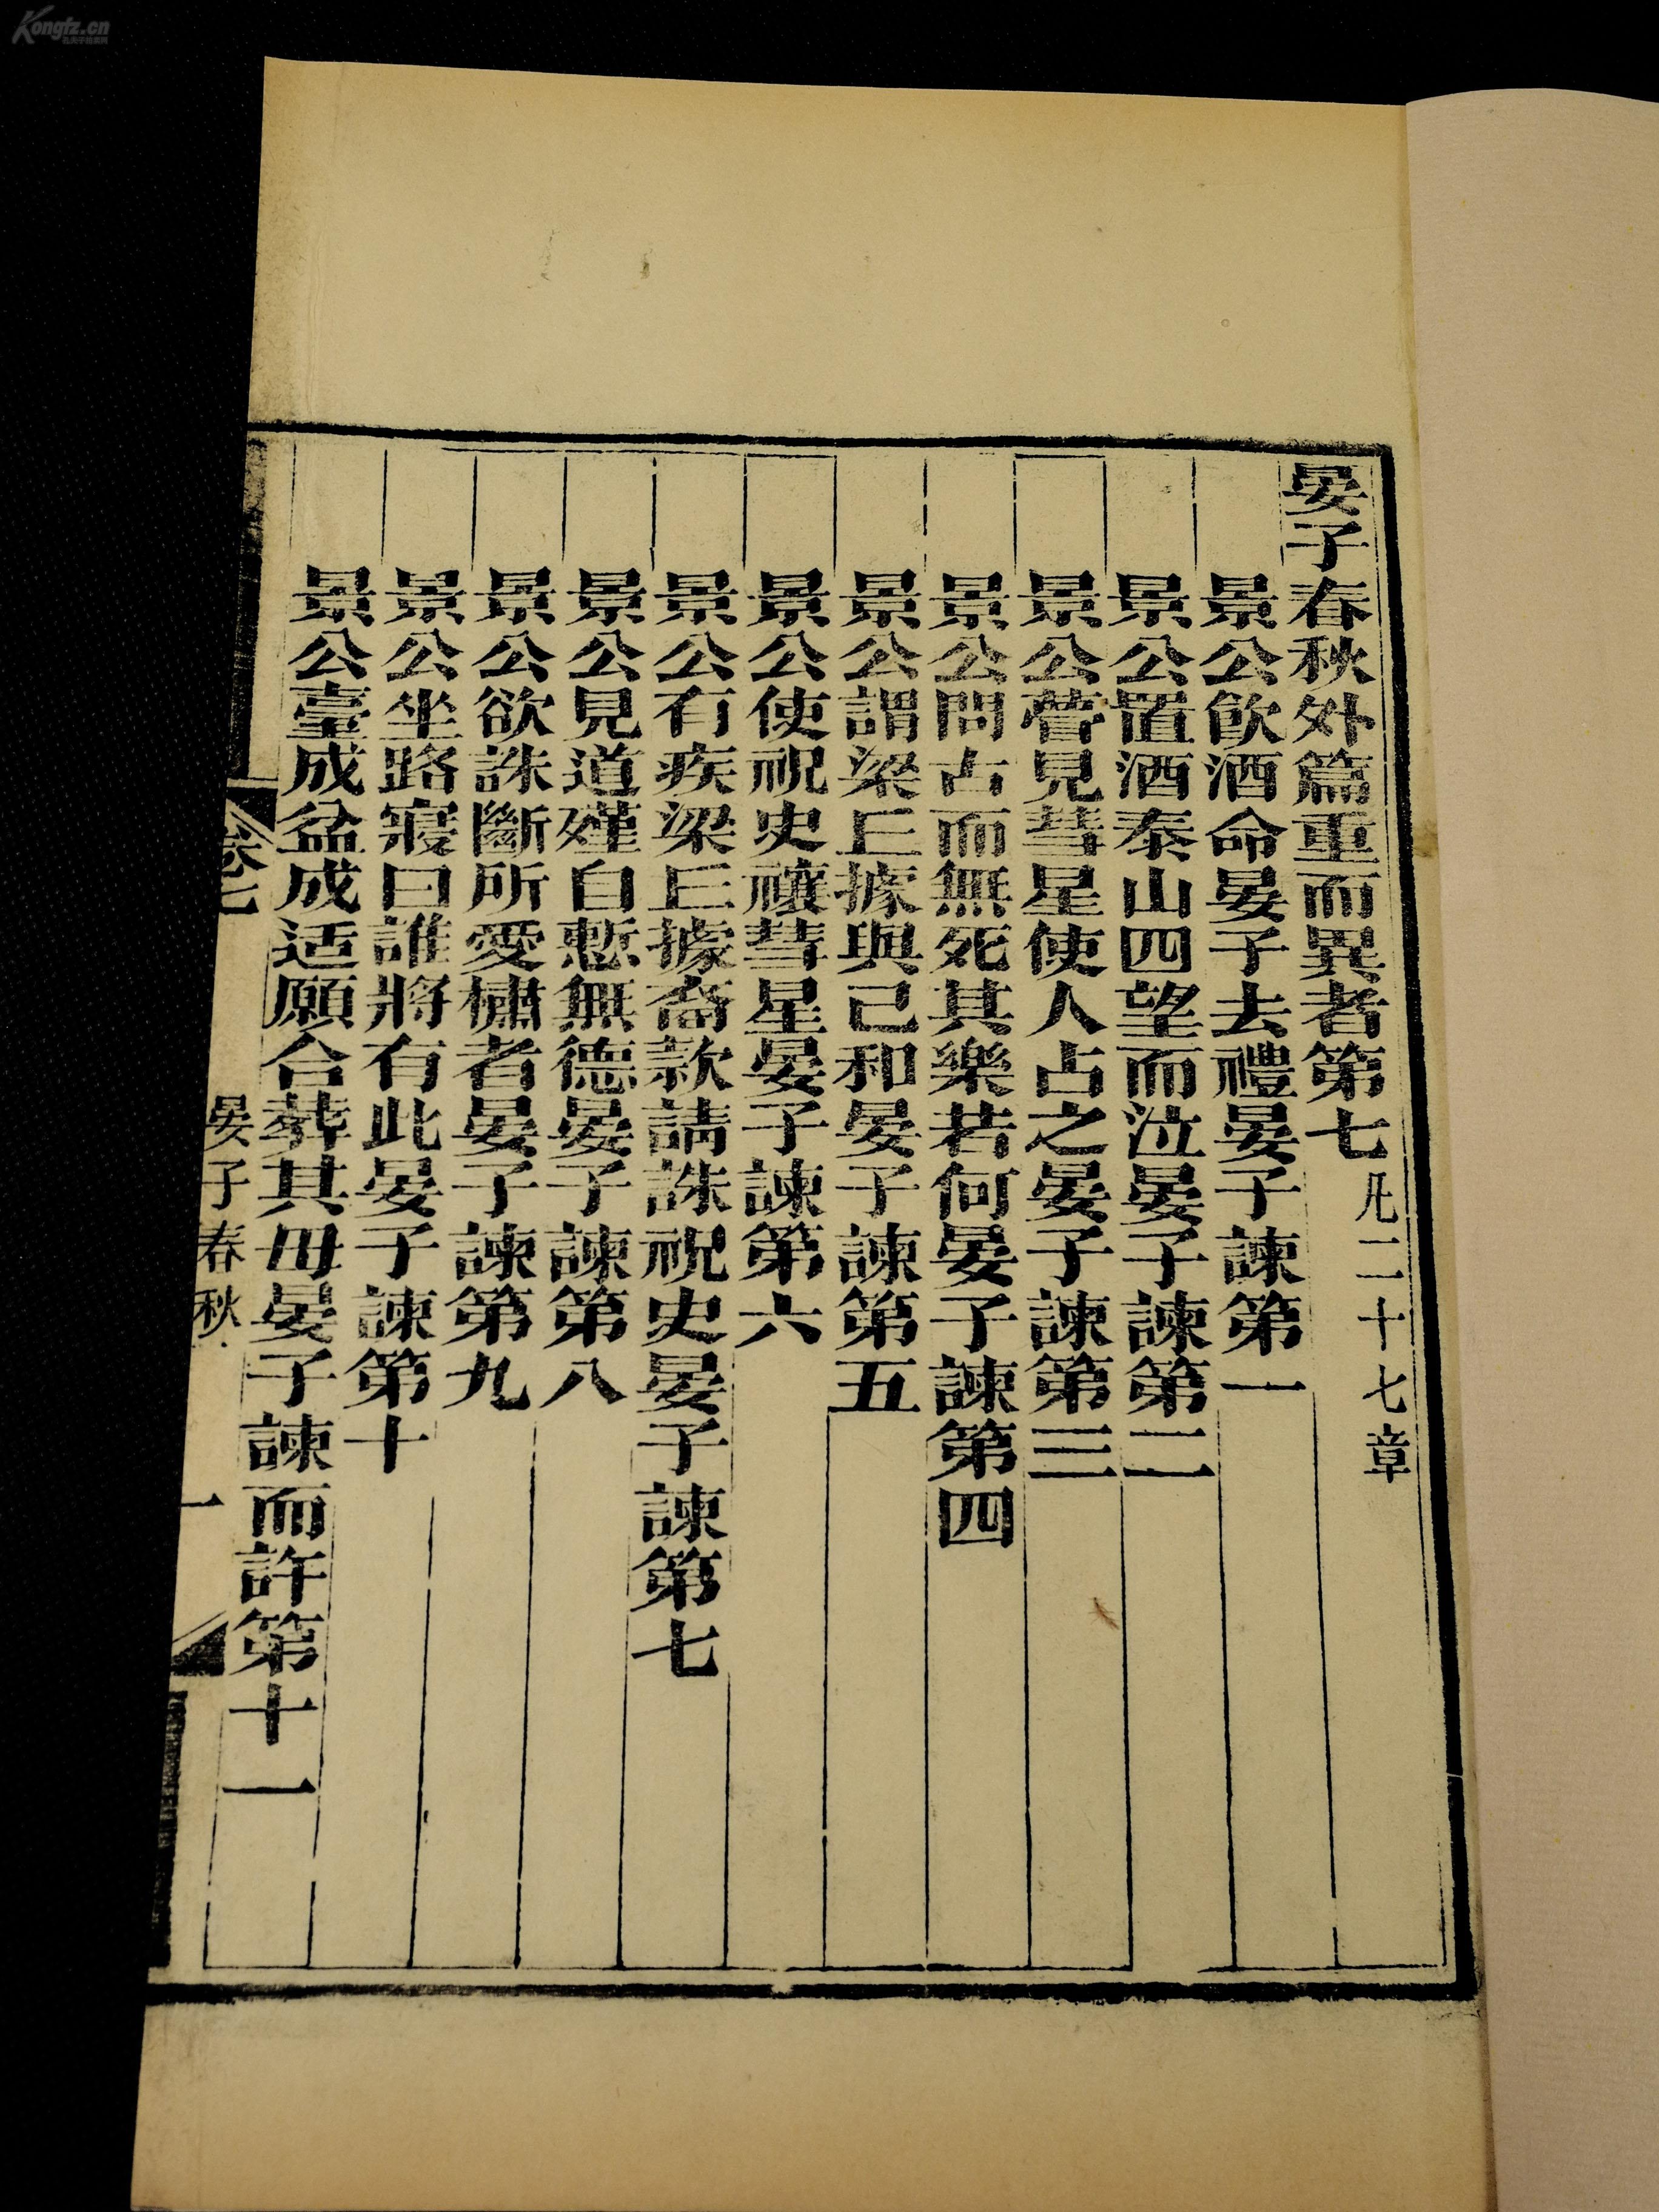 晏子春秋外篇重而異者第七凡二十七章
景公飲酒命晏子去禮晏子諫第一
景公置酒泰山四望而泣晏子諫第二
景公瞢見彗星使人占之晏子諫第三
景公問古而無死其樂若何晏子諫第四
景公謂梁丘據與己和晏子諫第五
景公使祝史禳彗星晏子諫第六
景公有疾梁丘據裔款請誅祝史晏子諫第七
景公見道殣自慙無德晏子諫第八
景公欲誅斷所愛橚者晏子諫第九
景公坐路寢曰誰將有此晏子諫第十
景公臺成盆成适願合葬其母晏子諫而許第十一
卷七
晏子春秋
一
Kongfz.cn